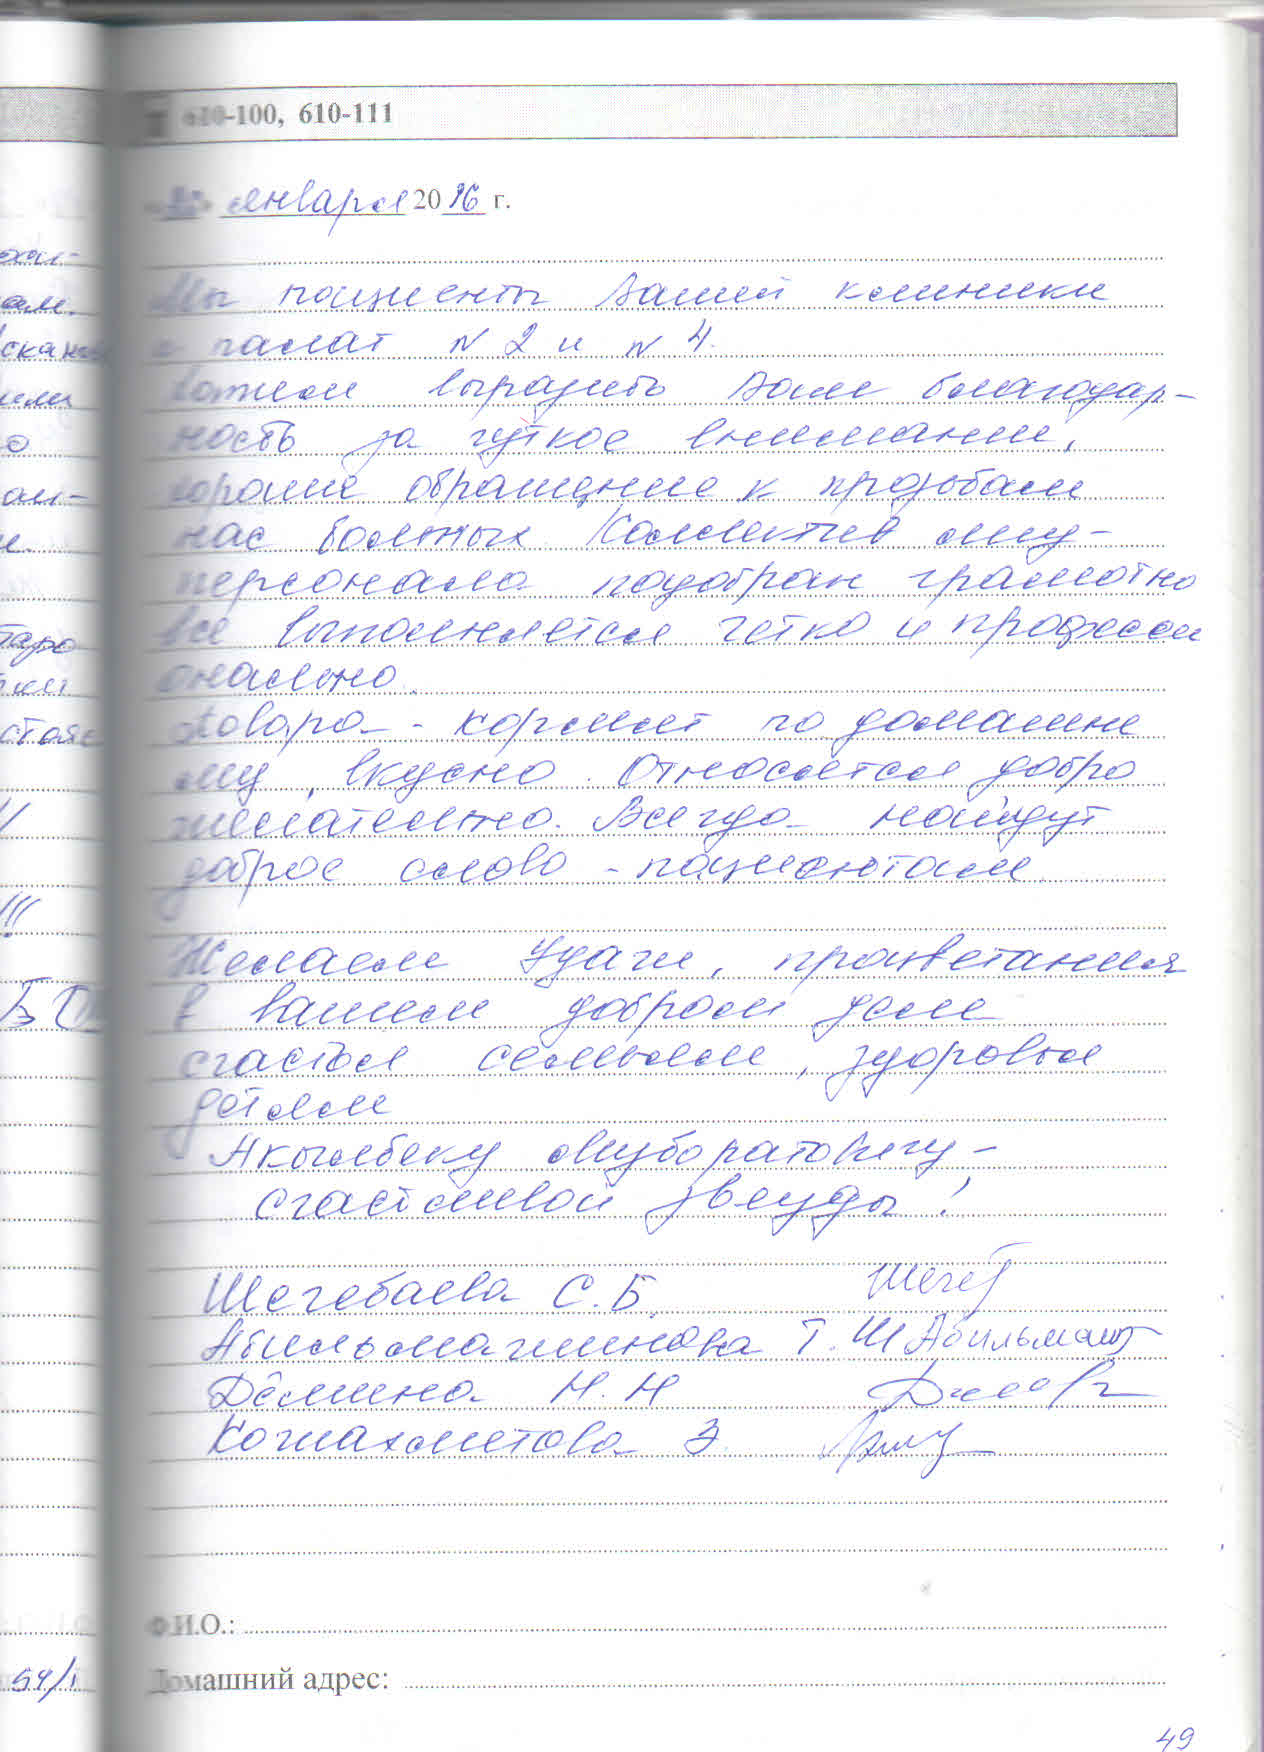 610-100, 610-111
января 2016 г.
Мы пациенты Вашей клиники
с палат N 2 и N 4.
выразить Вам благодар-
ность за чуткое внимании,
хорошие обращение к прозьбам
нас больных Коллектив мед-
персонала подобран грамотно
все выполняется четко и професси
онально.
Повара - кормят по домашне
му, вкусно. Относятся добро
желательно. Всегда найдут
доброе слово - пациентам
Желаем Удачи, процветания
в вашем добром деле
счастья семьям, здоровья
детям
Акылбеку Муборатовичу -
счастливой звезды!
Шегебаева С.Б. Шегеб
Абильмагжинова Т.Ш Абильмаг
Дёмина Н.Н
Кожахметова З.
Ф.И.О.:
Домашний адрес:
49
скан
ами
о
ам-
54/1